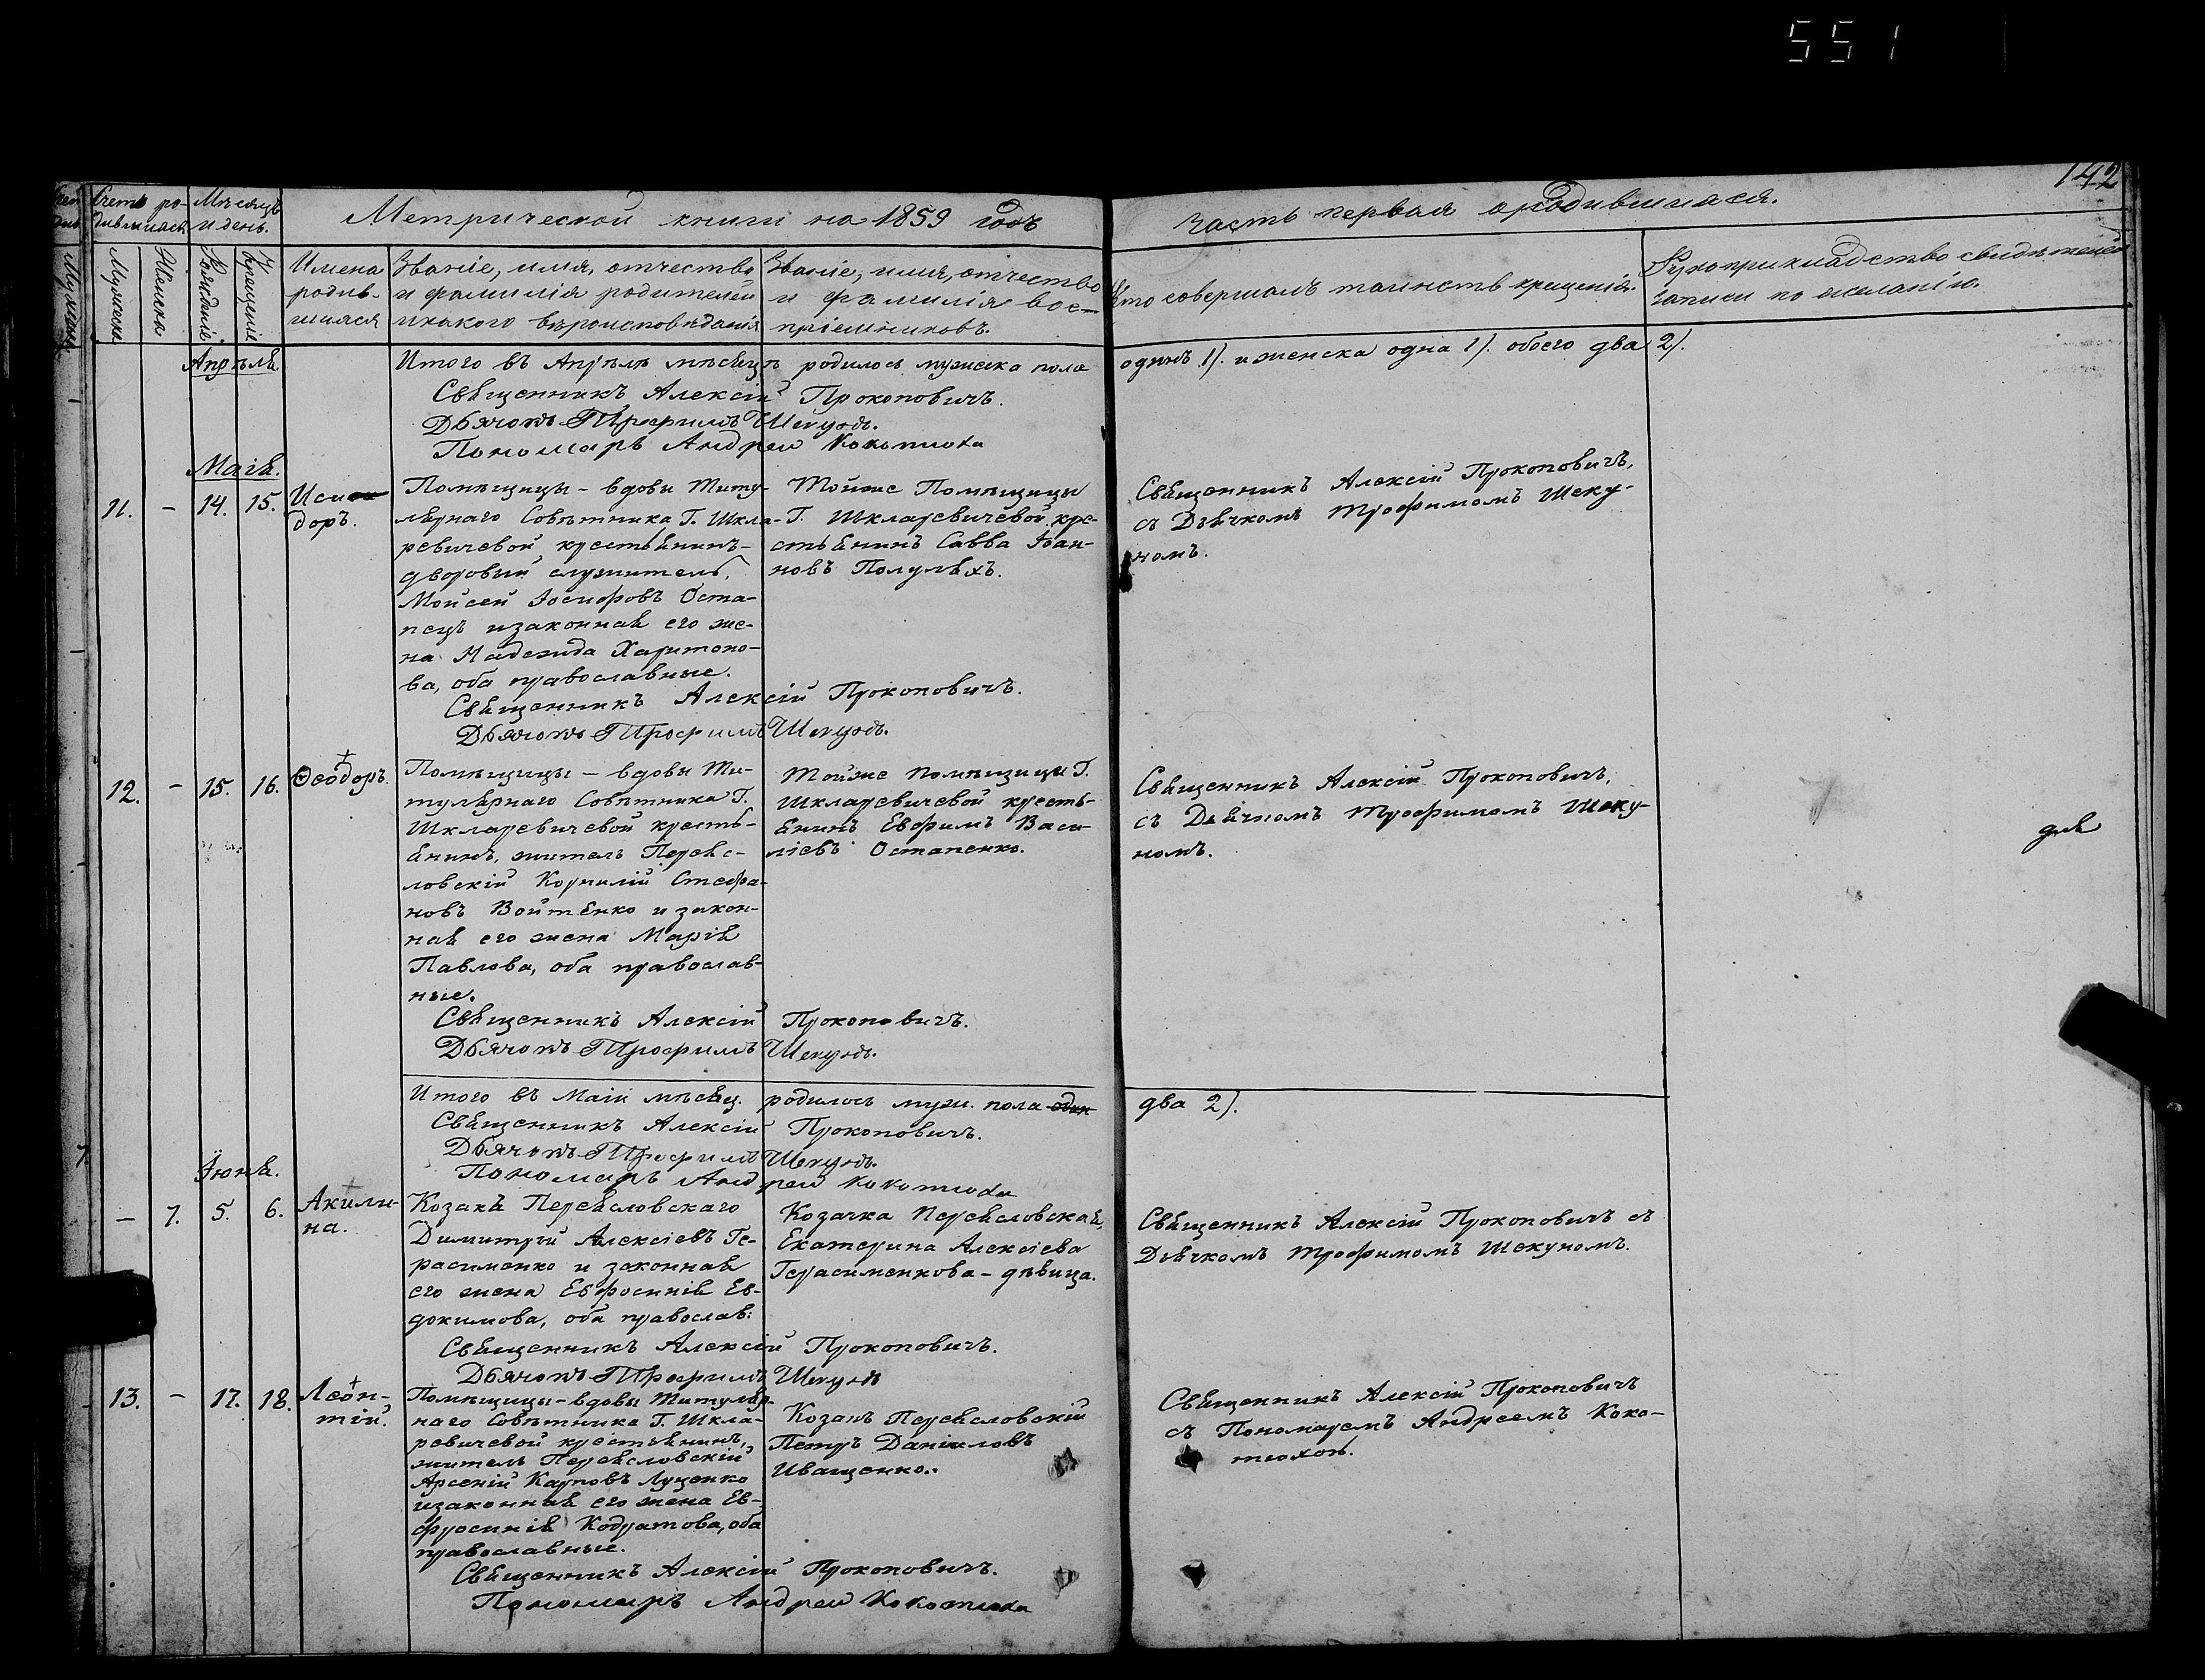 551
142
Счетъ ро-
дившихся
Мѣсяцъ
и день.
Метрической книги на 1859 годъ
Часть первая о родившихся.
Мужеска
Женска
Рожденіе.
Крещеніе
Имена
родив-
шихся
Званіе, имя, отчество
и фамилія родителей
и какого вѣроисповѣданія
Званіе, имя, отчество
и фамилія вос-
пріемниковъ.
Кто совершалъ таинств крещенія.
Рукоприкладство свидѣтелей
записи по желанію.
Апрѣля
Итого въ Апрѣлѣ мѣсяцѣ родилось мужеска пола
одинъ 1). и женска одна 1). обоего два 2).
Священникъ Алексій Прокоповичъ.
Дьячокъ Трофимъ Шекунъ.
Пономарь Андрей Кокотюха
Маія.
11. – 14. 15.
Иси
доръ.
Помѣщицы – вдовы Титу-
лярнаго Совѣтника, Г. Шкла-
ревичевой крестьянинъ –
дворовый служитель,
Мойсей Іосифовъ Оста-
пецъ и законная его же-
на Надежда Харитоно-
ва, оба православные.
Тойже Помѣщицы
Г. Шкларевичевой кре-
стьянинъ Савва Іоан-
новъ Полуляхъ.
Священникъ Алексій Прокоповичъ,
съ Дьячкомъ Трофимомъ Шеку-
номъ.
Священникъ Алексій Прокоповичъ.
Дьячокъ Трофимъ Шекунъ.
12. – 15. 16.
Ѳеодоръ.
Помѣщицы – вдовы Ти-
тулярнаго Совѣтника Г.
Шкларевичевой кресть-
янинъ, житель Переяс-
ловскій Корнилій Стефа-
новъ Войтенко и закон-
ная его жена Марія
Павлова, оба православ-
ные.
Тойже помѣщицы Г.
Шкларевичевой кресть-
янинъ Евфимъ Васи-
ліевъ Остапенко.
Священникъ Алексій Прокоповичъ,
съ Дьячкомъ Трофимомъ Шеку-
номъ.
для
Священникъ Алексій Прокоповичъ.
Дьячокъ Трофимъ Шекунъ.
Итого въ Маіи мѣсяц. родилось муж. пола один
два 2).
Священникъ Алексій Прокоповичъ.
Дьячокъ Трофимъ Шекунъ.
Пономарь Андрей Кокотюха
Іюня.
– 7. 5. 6.
Акили-
на.
Козакъ Переясловскаго
Димитрій Алексіевъ Ге-
расименко и законная
его жена Евфросинія Ев-
докимова, оба православ:
Козачка Переясловская,
Екатерина Алексіева
Герасименкова – дѣвица.
Священникъ Алексій Прокоповичъ съ
Дьячкомъ Трофимомъ Шекуномъ.
Священникъ Алексій Прокоповичъ.
Дьячокъ Трофимъ Шекунъ
13. – 17. 18.
Леон-
тій.
Помѣщицы – вдовы Титуляр-
наго Совѣтника Г. Шкла-
ревичевой крестьянинъ,
житель Переясловскій
Арсеній Карповъ Луценко
и законная его жена Ев-
фросинія Кодратова, оба
православные.
Козакъ Переясловскій
Петръ Даніиловъ
Иващенко.
Священникъ Алексій Прокоповичъ
съ Пономаремъ Андреемъ Коко-
тюхою.
Священникъ Алексій Прокоповичъ.
Пономарь Андрей Кокотюха